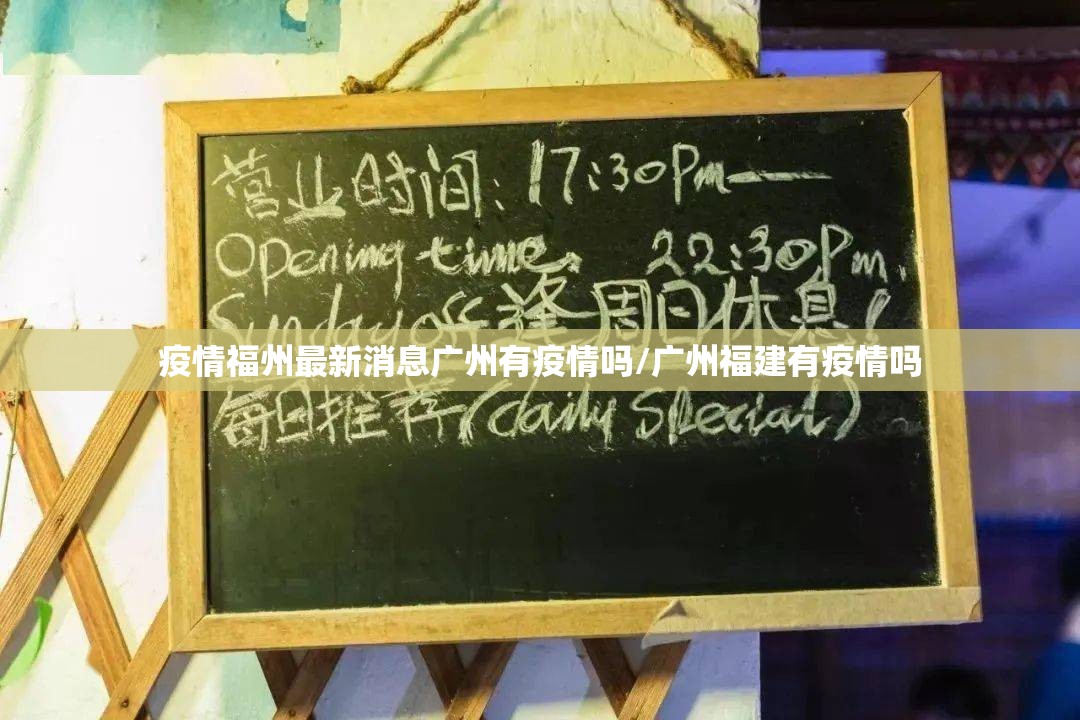 营业时间: 17:30Pm——
Opening time. 22:30Pm.
Sunday off 逢周日休息!
疫情福州最新消息广州有疫情吗/广州福建有疫情吗
每日推荐(daily special)